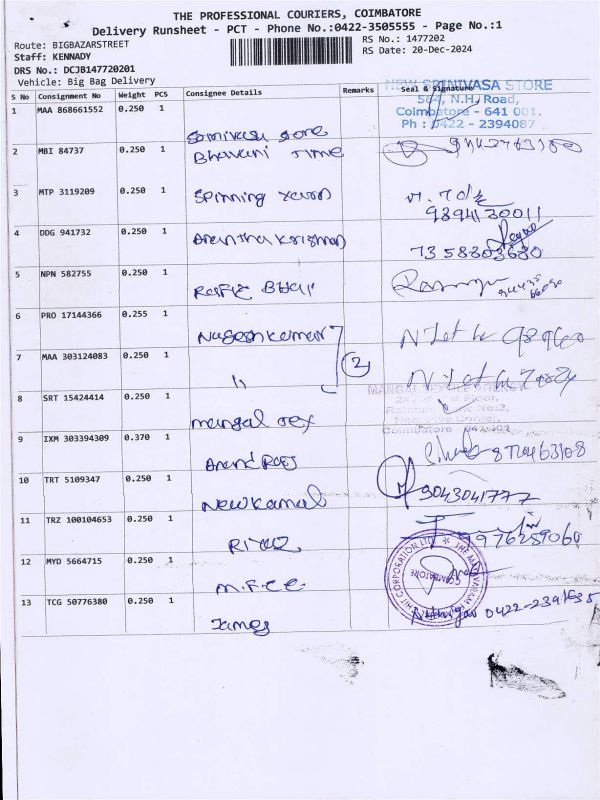 THE PROFESSIONAL COURIERS, COIMBATORE
Delivery Runsheet - PCT - Phone No.:0422-3505555 - Page No.:1
Route: BIGBAZARSTREET
RS No.: 1477202
Staff: KENNADY
RS Date: 20-Dec-2024
DRS No.: DCJB147720201
Vehicle: Big Bag Delivery
S No Consignment No Weight PCS Consignee Details Remarks Seal & Signature
NEW SRINIVASA STORE
564, N.H. Road,
Coimbatore - 641 001.
Ph : 0422 - 2394087
1 MAA 868661552 0.250 1
2 MBI 84737 0.250 1 Bhavani Time
3 MTP 3119209 0.250 1 Spinning
9894130011
4 DDG 941732 0.250 1 Anantha Krishnan
7358803680
5 NPN 582755 0.250 1 Rafiz Bhai
6 PRO 17144366 0.255 1 Nageshkumar
2
7 MAA 303124083 0.250 1 "
8 SRT 15424414 0.250 1 mangal Tex
9 IXM 303394309 0.370 1 Anand Raj
10 TRT 5109347 0.250 1 New Kamal 9043041777
11 TRZ 100104653 0.250 1 Riyaz
COIMBATORE
12 MYD 5664715 0.250 1 M.F.C.C.
13 TCG 50776380 0.250 1 James